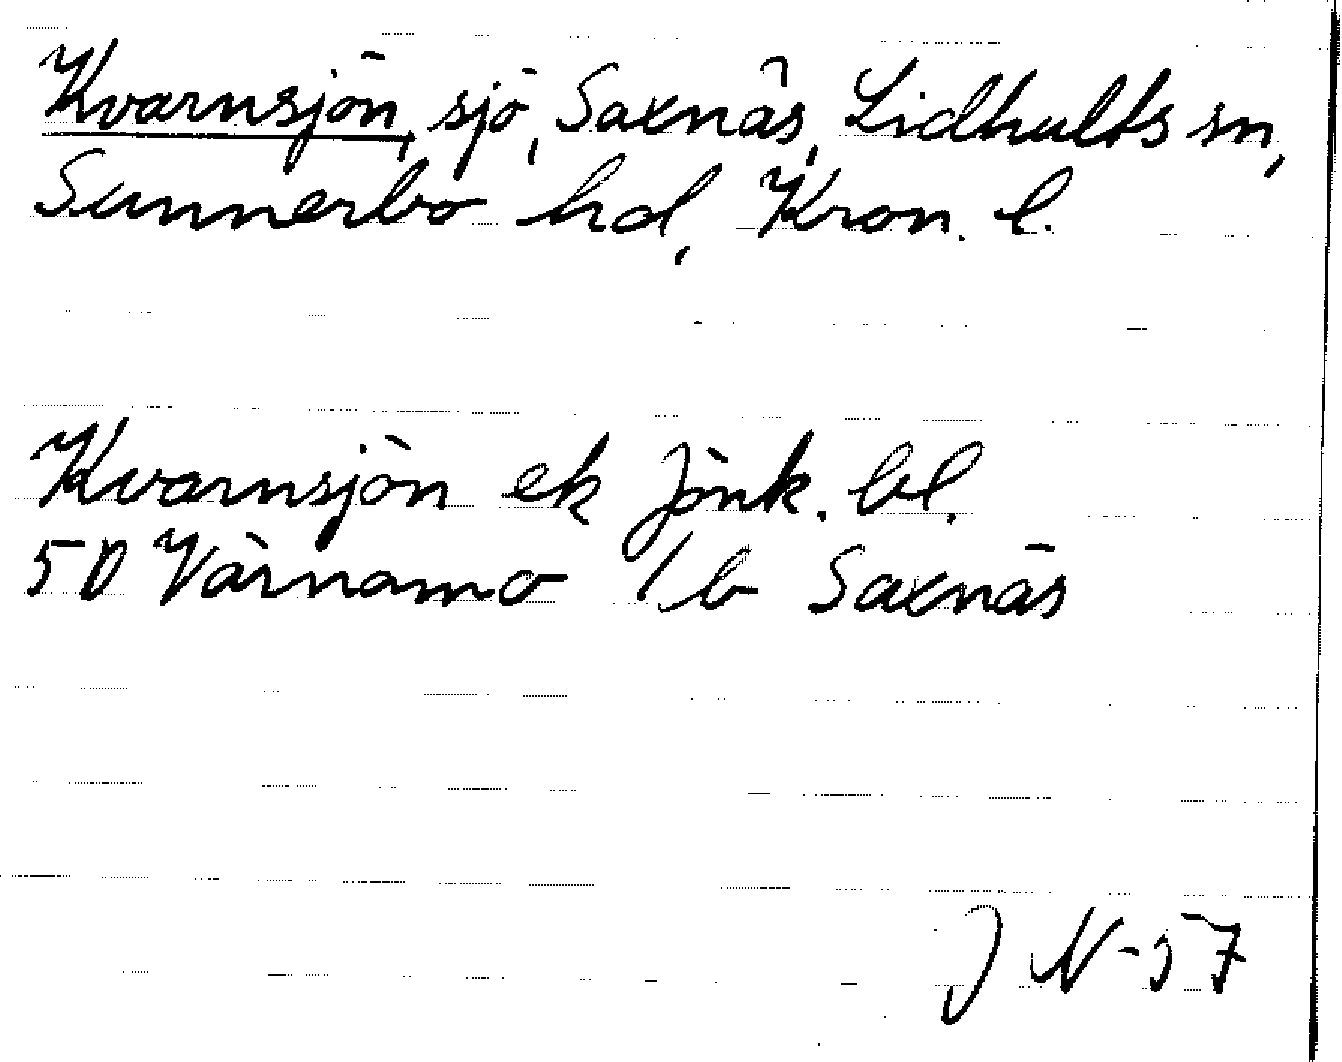 Kvarnsjön, sjö, Saxnäs, Lidhults sn,
Sunnerbo hd, Kron. l.
Kvarnsjön ek Jönk. bl.
5D Värnamo 1b Saxnäs
J N-57